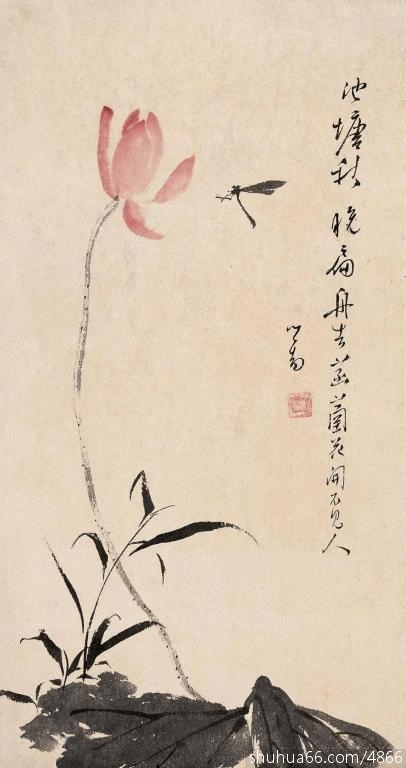 池塘秋晚扁舟去菡萏花開不見人
心畬
shuhua66.com/4866